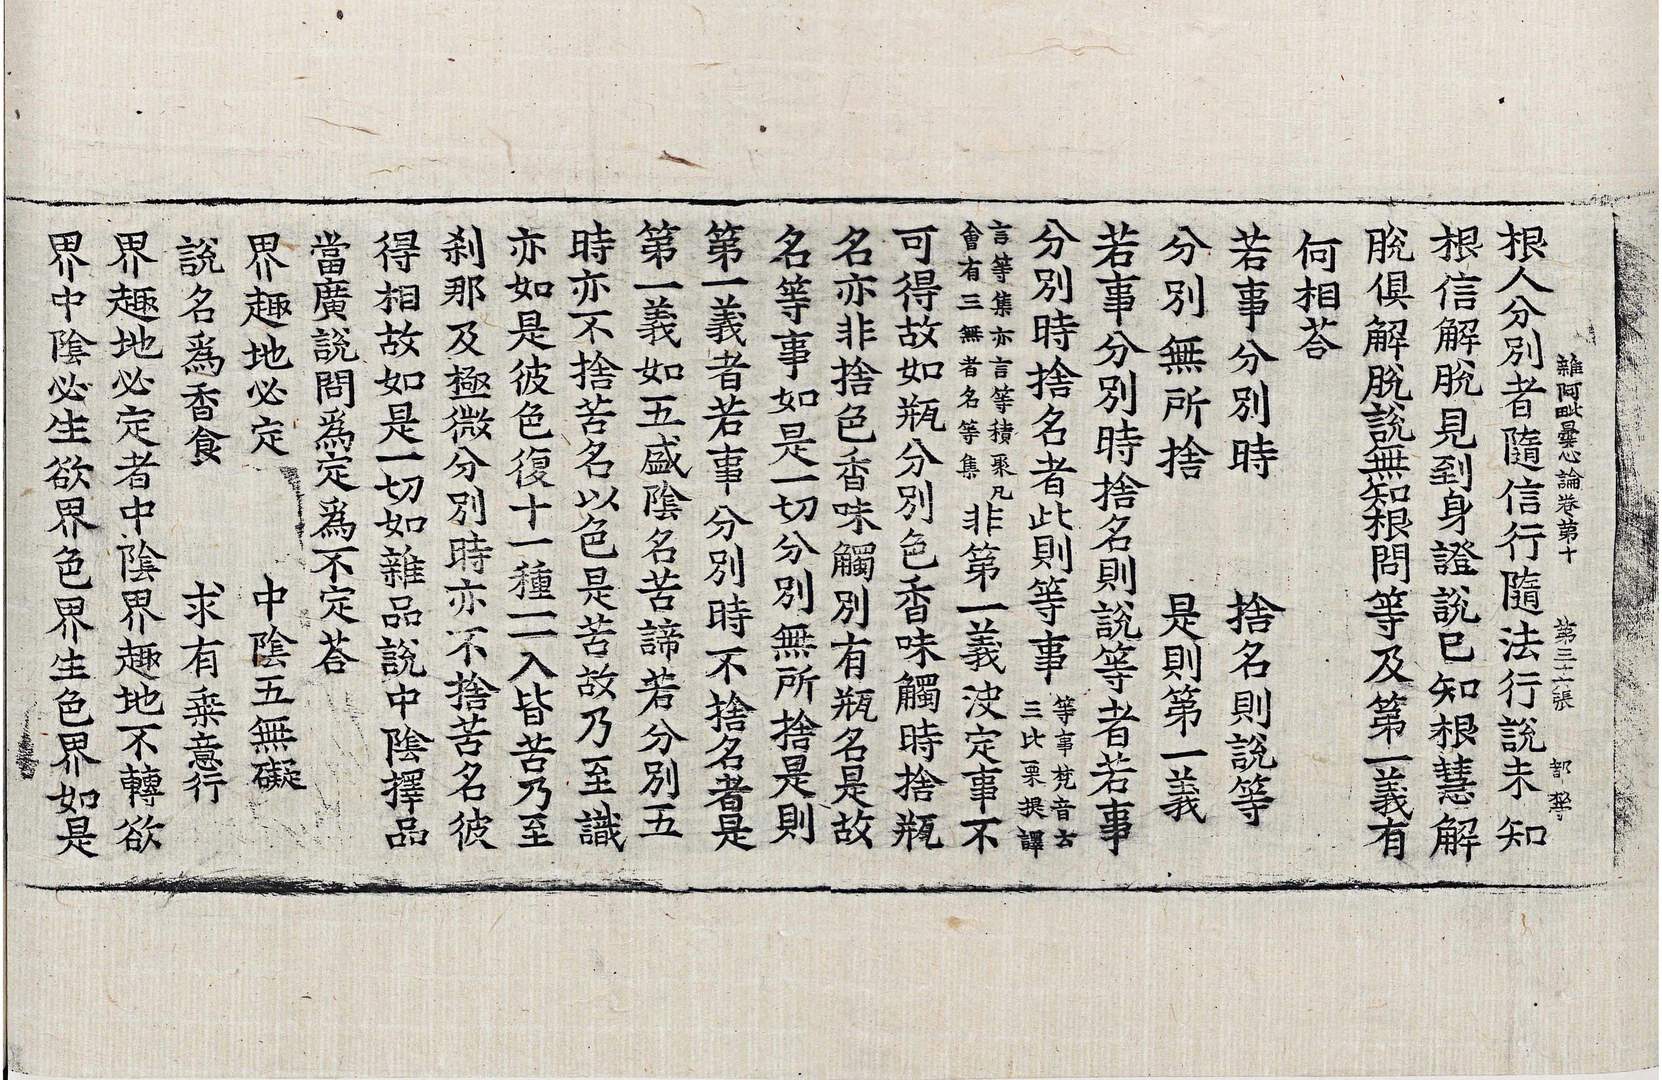 雜阿毗曇心論卷第十　第三十六張　都　犂
根人分別者隨信行隨法行說未知
根信解脫見到身證說已知根慧解
脫俱解脫說無知根問等及第一義有
何相荅
若事分別時　捨名則說等
分別無所捨　是則第一義
若事分別時捨名則說等者若事
分別時捨名者此則等事等事梵音云三比栗提譯
言等集亦言等積聚凡會有三無者名等集非第一義決定事不
可得故如瓶分別色香味觸時捨瓶
名亦非捨色香味觸別有瓶名是故
名等事如是一切分別無所捨是則
第一義者若事分別時不捨名者是
第一義如五盛陰名苦諦若分別五
時亦不捨苦名以色是苦故乃至識
亦如是彼色復十一種一一入皆苦乃至
剎那及極微分別時亦不捨苦名彼
得相故如是一切如雜品說中陰擇品
當廣說問爲定爲不定荅
界趣地必定　中陰五無礙
說名爲香食　求有乗意行
界趣地必定者中陰界趣地不轉欲
界中陰必生欲界色界生色界如是